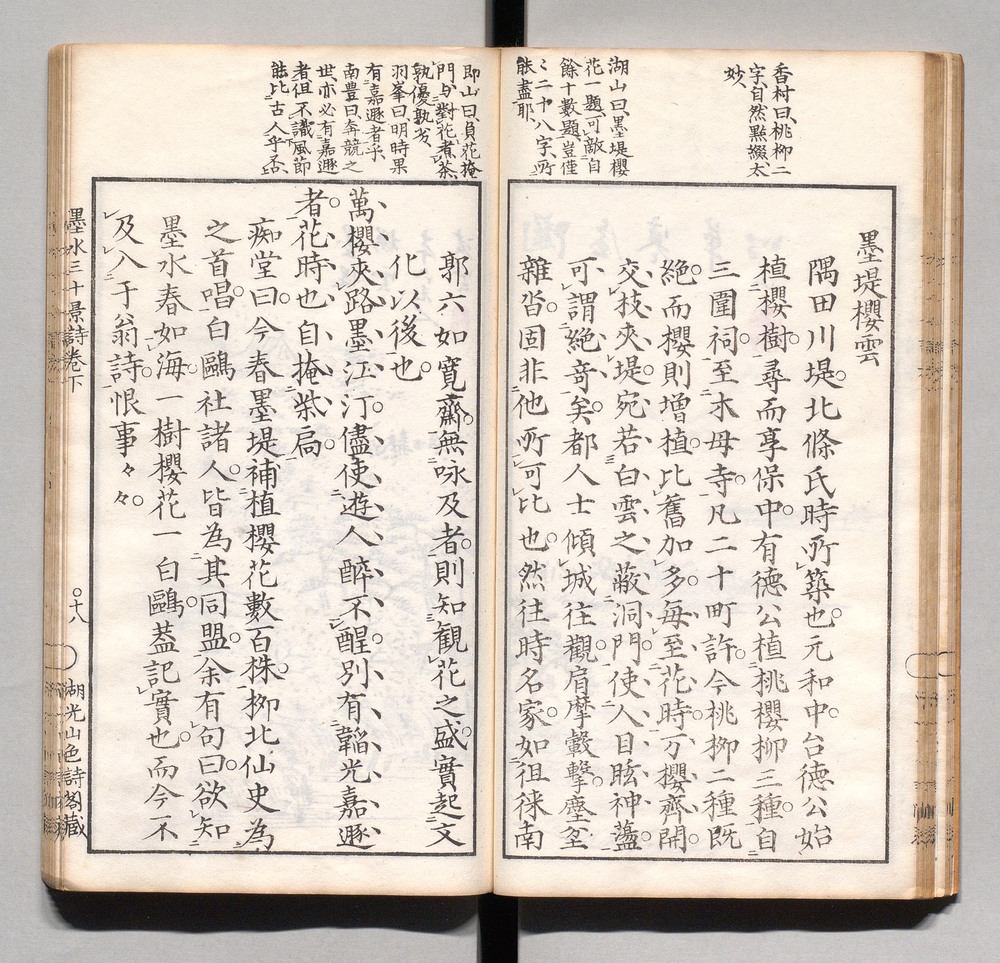 香村曰桃柳二
字自然點綴太
妙
湖山曰墨堤櫻
花一題可敵自
餘十數題豈僅
〻二十八字所
能盡耶
墨堤櫻雲
隅田川堤北條氏時所築也元和中台德公始
植櫻樹尋而享保中有德公植桃櫻柳三種自
三圍祠至木母寺凡二十町許今桃柳二種既
絶而櫻則增植比舊加多每至花時万櫻齊開
交枝夾堤宛若白雲之蔽洞門使人目眩神蕩
可謂絶奇矣都人士傾城往觀肩摩轂擊塵坌
雜沓固非他所可比也然往時名家如徂徠南
即山曰負花掩
門与對花煮茶
孰優孰劣
羽峯曰明時果
有嘉遯者乎
南豊曰奔競之
世亦必有嘉遯
者徂不識風節
能比古人乎否
郭六如寬齋無咏及者則知觀花之盛實起文
化以後也
萬櫻夾路墨江汀儘使遊人醉不醒別有韜光嘉遯
者花時也自掩柴扃
痴堂曰今春墨堤補植櫻花數百株柳北仙史為
之首唱白鷗社諸人皆為其同盟余有句曰欲知
墨水春如海一樹櫻花一白鷗葢記實也而今不
及入于翁詩恨事々々
墨水三十景詩卷下
十八
湖光山色詩閣藏